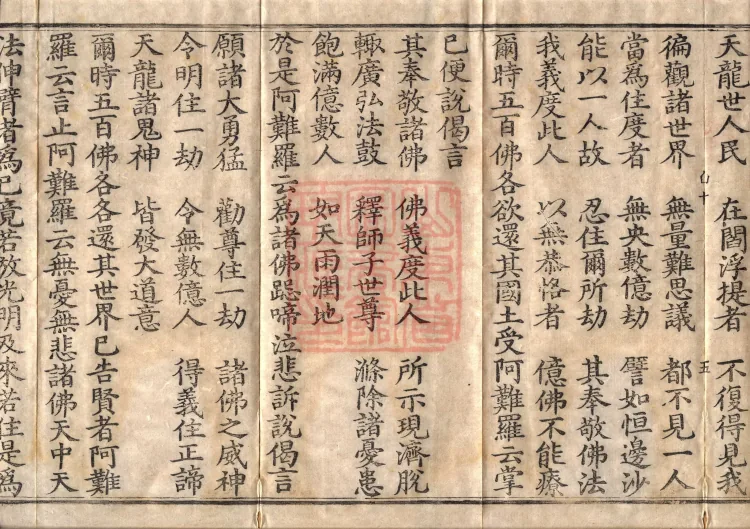 天龍世人民　在閻浮提者　不復得見我
徧觀諸世界　無量難思議　都不見一人
當為住度者　無央數億劫　譬如恒邊沙
能以一人故　忍住爾所劫　其奉敬佛法
我義度此人　以無恭恪者　億佛不能療
爾時五百佛各欲還其國土受阿難羅云掌
已便說偈言
其奉敬諸佛　佛義度此人　所示現濟脫
輙廣弘法鼓　釋師子世尊　滌除諸憂患
飽滿億數人　如天雨潤地
於是阿難羅云為諸佛跽啼泣悲訴說偈言
願諸大勇猛　勸尊住一劫　諸佛之威神
令明住一劫　令無數億人　得義住正諦
天龍諸鬼神　皆發大道意
爾時五百佛各各還其世界已告賢者阿難
羅云言止阿難羅云無憂無悲諸佛天中天
法伸臂者為已竟若放光明及來若住是為
五